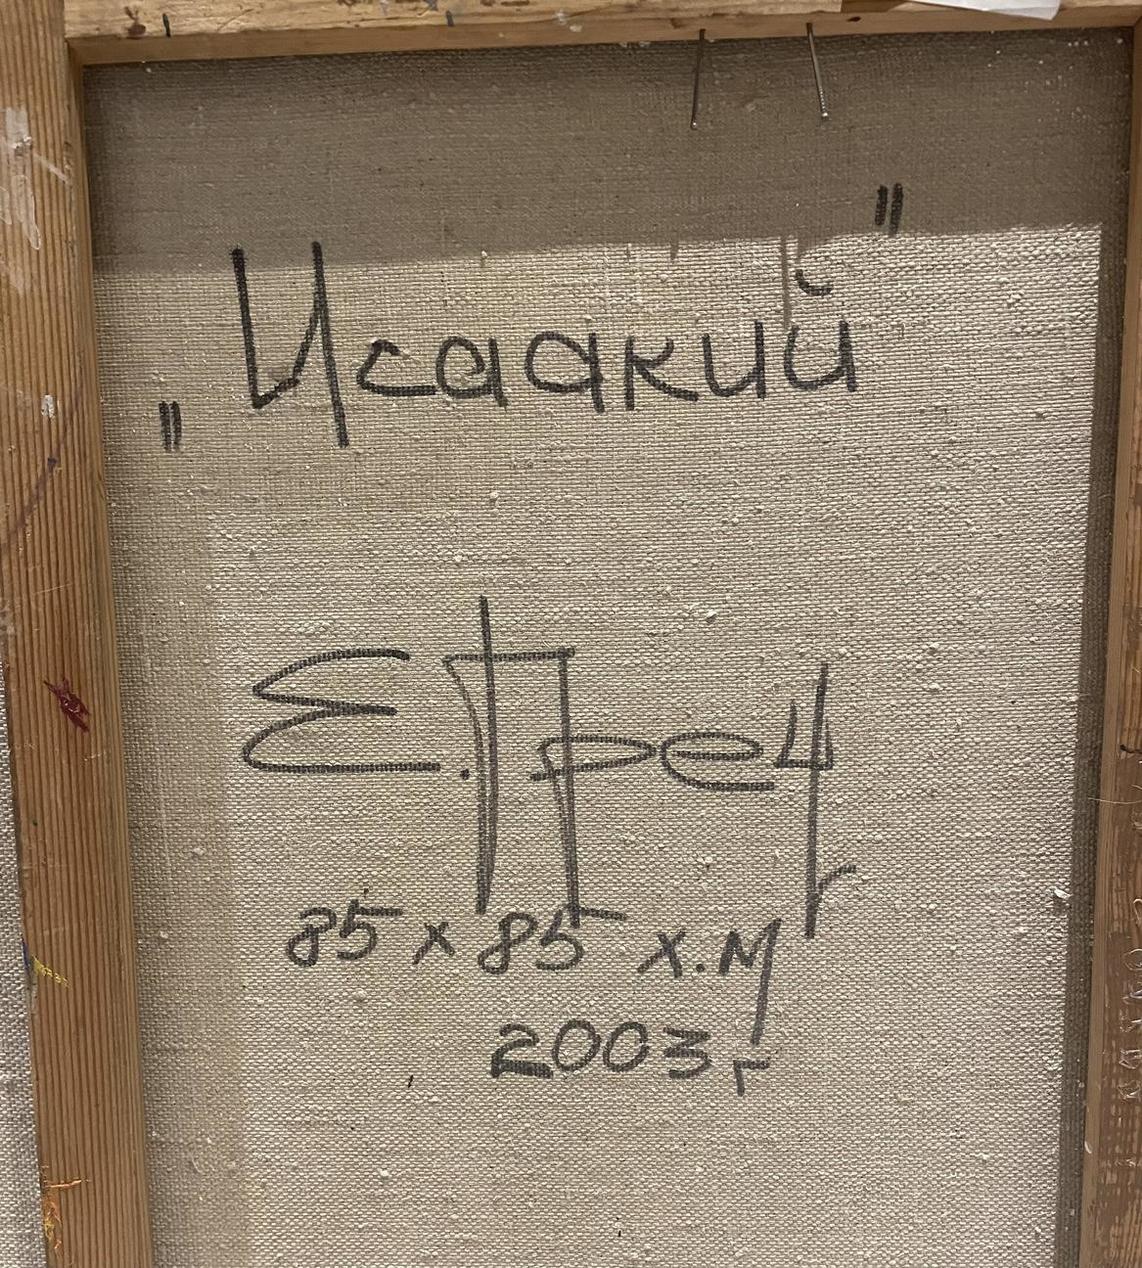 „Исаакий"
Е. Прец
85 х 85 х.м
2003 г